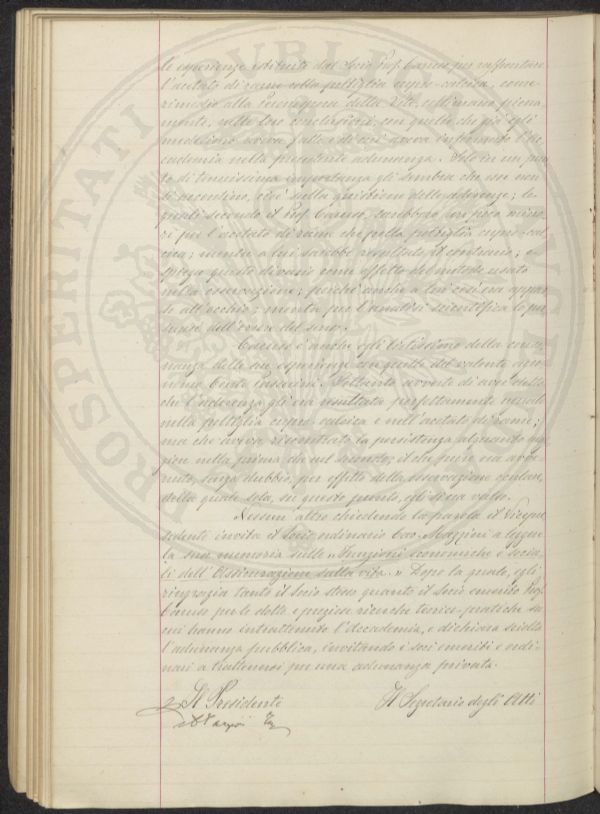 le esperienze istituite dal Socio Prof. Caruso, per raffrontare
l'acetato di rame colla poltiglia cupro-calcica, come
rimedio alla Peronospora della Vite, collimano piena
mente, nelle loro conclusioni, con quelle che già egli
medesimo aveva fatte e di cui aveva informato l'Ac
cademia nella precedente adunanza. Solo in un pun
to di tenuissima importanza gli sembra che esse non
si accordino, cioè sulla quistione delle aderenze; le
quali secondo il Prof. Caruso, sarebbero un poco mino
ri per l'acetato di rame che per la poltiglia cupro-cal
cica; mentre a lui sarebbe resultato il contrario; e
spiega questo divario come effetto del metodo usato
nella osservazione; perchè anche a lui così era appar
so all'occhio; mentre per l'analisi scientifica
dell'
Caruso è anche egli lietissimo della conso
nanza delle sue esperienze con quelle del valente agro
nomo Conte Soltanto avverte di aver detto
che l'aderenza gli era resultata perfettamente uguale
nella poltiglia cupro-calcica e nell'acetato di rame;
ma che aveva riscontrato la persistenza alquanto mag
giore nella prima che nel secondo; il che può era avve
nuto, senza dubbio, per effetto della osservazione oculare,
della quale sola, su questo punto, egli si era valso.
Nessun altro chiedendo la parola il Vicepre
sidente invita il Socio ordinario Cav. a leggere
la sua memoria sulle "Funzioni economiche e socia
li dell'Assicurazione sulla vita." Dopo la quale, egli
ringrazia tanto il Socio stesso quanto il Socio emerito Prof.
Caruso per le dotte e pregiate ricerche teorico-pratiche su
cui hanno intrattenuto l'Accademia, e dichiara sciolta
l'adunanza pubblica, invitando i soci emeriti e ordi
nari a trattenersi per una adunanza privata.
Il Presidente Il Segretario degli Atti
PROSPERITATI PVBLICAE